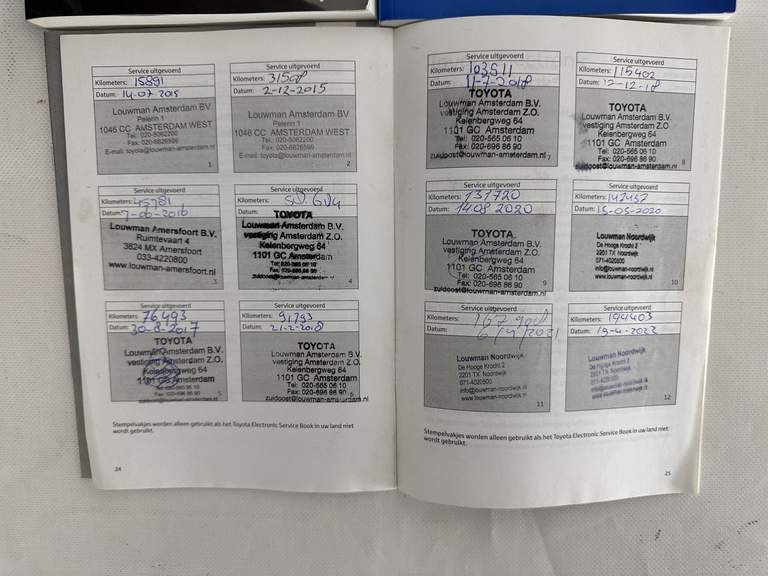 Service uitgevoerd
Kilometers: 15891
Datum: 14-07-2015
Louwman Amsterdam BV
Pelerin 1
1046 CC AMSTERDAM WEST
Tel.: 020-5062200
E-mail: toyota@louwman-amsterdam.nl
1
Service uitgevoerd
Kilometers: 31508
Datum: 2-12-2015
Louwman Amsterdam BV
Pelerin 1
1046 CC AMSTERDAM WEST
Tel.: 020-5062200
E-mail: toyota@louwman-amsterdam.nl
2
Service uitgevoerd
Kilometers:
Datum: 7-06-2016
Louwman Amersfoort B.V.
Ruimtevaart 4
3824 MX Amersfoort
033-4220800
www.louwman-amersfoort.nl
3
Service uitgevoerd
Kilometers:
Datum:
TOYOTA
Louwman Amsterdam B.V.
vestiging Amsterdam Z.O.
Keienbergweg 64
1101 GC Amsterdam
Tel: 020-565 06 10
Fax: 020-696 86 90
zuidoost@louwman-amsterdam.nl
4
Service uitgevoerd
Kilometers: 76493
Datum: 30-8-2017
TOYOTA
Louwman Amsterdam B.V.
vestiging Amsterdam Z.O.
Keienbergweg 64
1101 GC Amsterdam
Tel: 020-565 06 10
Fax: 020-696 86 90
zuidoost@louwman-amsterdam.nl
5
Service uitgevoerd
Kilometers: 91793
Datum: 21-2-2018
TOYOTA
Louwman Amsterdam B.V.
vestiging Amsterdam Z.O.
Keienbergweg 64
1101 GC Amsterdam
Tel: 020-565 06 10
Fax: 020-696 86 90
zuidoost@louwman-amsterdam.nl
6
Stempelvakjes worden alleen gebruikt als het Toyota Electronic Service Book in uw land niet
wordt gebruikt.
24
Service uitgevoerd
Kilometers: 103511
Datum: 11-7-2018
TOYOTA
Louwman Amsterdam B.V.
vestiging Amsterdam Z.O.
Keienbergweg 64
1101 GC Amsterdam
Tel: 020-565 06 10
Fax: 020-696 86 90
zuidoost@louwman-amsterdam.nl
7
Service uitgevoerd
Kilometers: 115402
Datum: 12-12-18
TOYOTA
Louwman Amsterdam B.V.
vestiging Amsterdam Z.O.
Keienbergweg 64
1101 GC Amsterdam
Tel: 020-565 06 10
Fax: 020-696 86 90
zuidoost@louwman-amsterdam.nl
8
Service uitgevoerd
Kilometers: 131720
Datum: 2020
TOYOTA
Louwman Amsterdam B.V.
vestiging Amsterdam Z.O.
Keienbergweg 64
1101 GC Amsterdam
Tel: 020-565 06 10
Fax: 020-696 86 90
zuidoost@louwman-amsterdam.nl
9
Service uitgevoerd
Kilometers:
Datum: 15-05-2020
Louwman Noordwijk
De Hooge Krocht 2
2201 TX Noordwijk
071-4020500
info@louwman-noordwijk.nl
www.louwman-noordwijk.nl
10
Service uitgevoerd
Kilometers:
Datum:
Louwman Noordwijk
De Hooge Krocht 2
2201 TX Noordwijk
071-4020500
info@louwman-noordwijk.nl
www.louwman-noordwijk.nl
11
Service uitgevoerd
Kilometers: 194403
Datum:
Louwman Noordwijk
De Hooge Krocht 2
2201 TX Noordwijk
12
Stempelvakjes worden alleen gebruikt als het Toyota Electronic Service Book in uw land niet
wordt gebruikt.
25